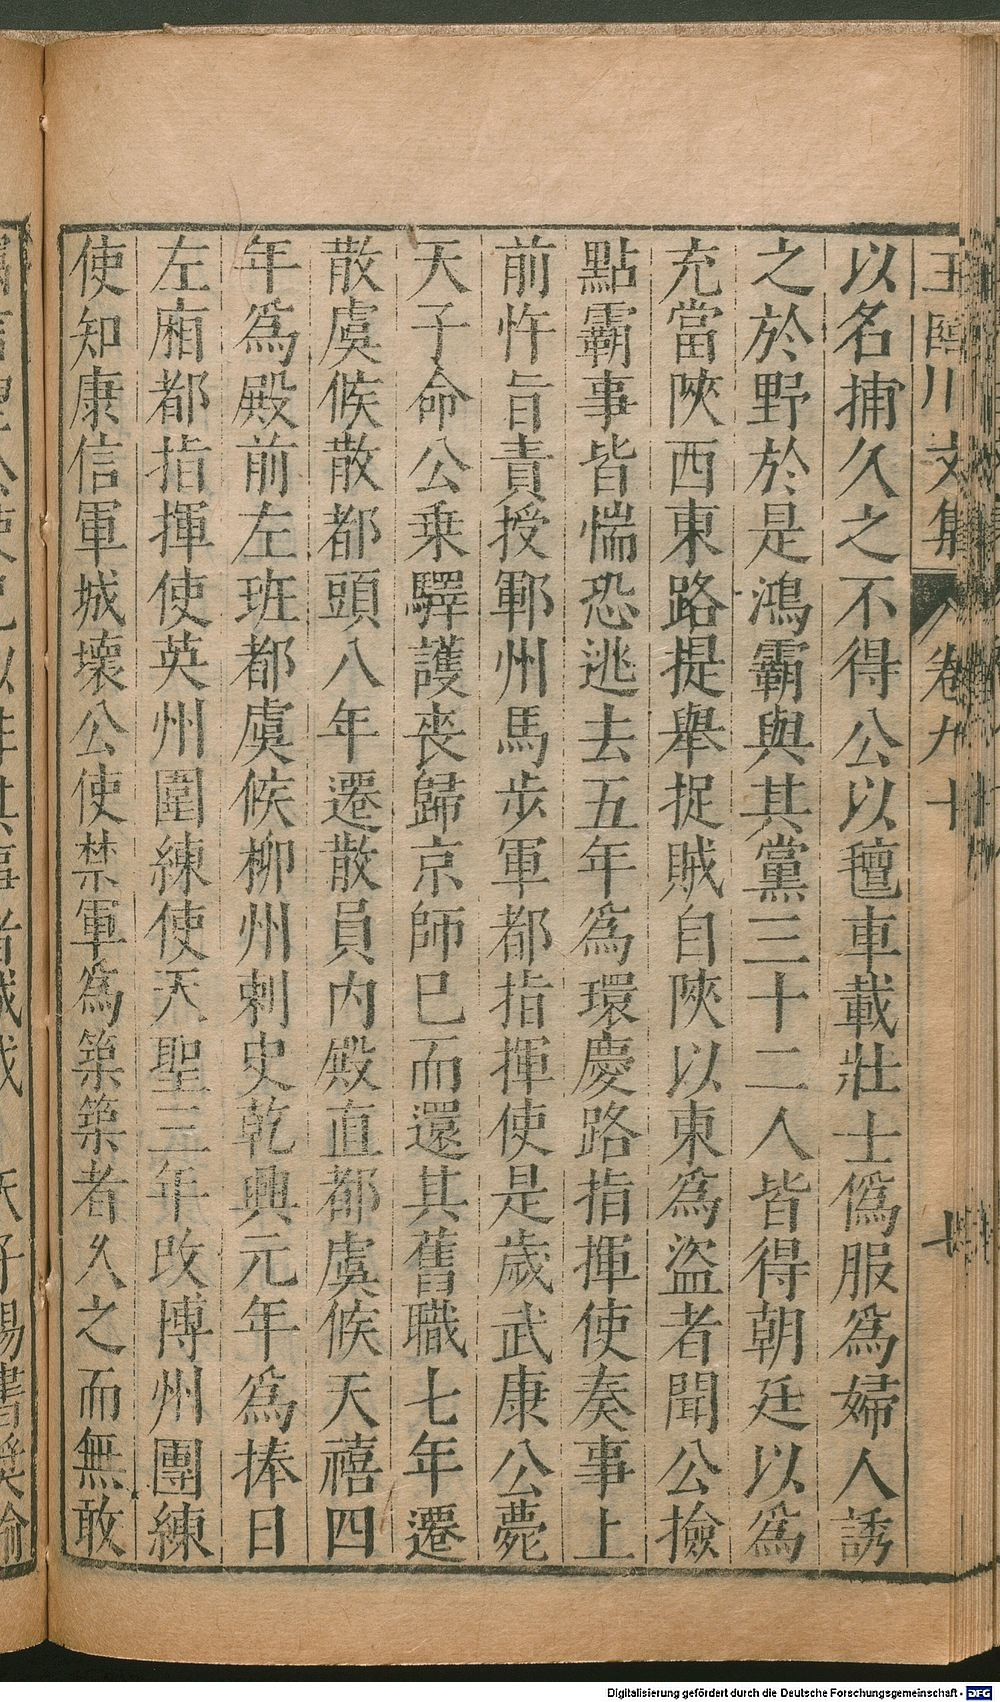 王臨川文集 卷九十 七
以名捕久之不得公以氊車載壯士僞服爲婦人誘
之於野於是鴻霸與其黨三十二人皆得朝廷以爲
充當陝西東路提舉捉賊自陝以東爲盜者聞公撿
點霸事皆惴恐逃去五年爲環慶路指揮使奏事上
前忤旨責授鄆州馬步軍都指揮使是歲武康公薨
天子命公乗驛護喪歸京師已而還其舊職七年遷
散虞候散都頭八年遷散員内殿直都虞候天禧四
年爲殿前左班都虞候柳州剌史乾興元年爲捧日
左廂都指揮使英州圍練使天聖三年改博州團練
使知康信軍城壞公使禁軍爲築築者久之而無敢